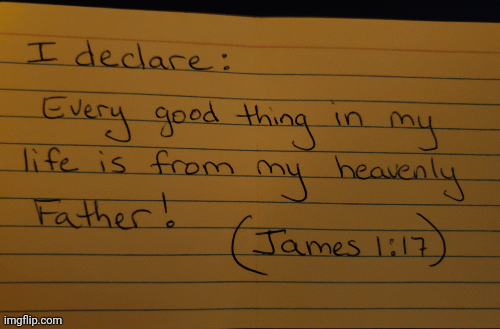 I declare:
Every good thing in my
life is from my heavenly
Father!
(James 1:17)
imgflip.com